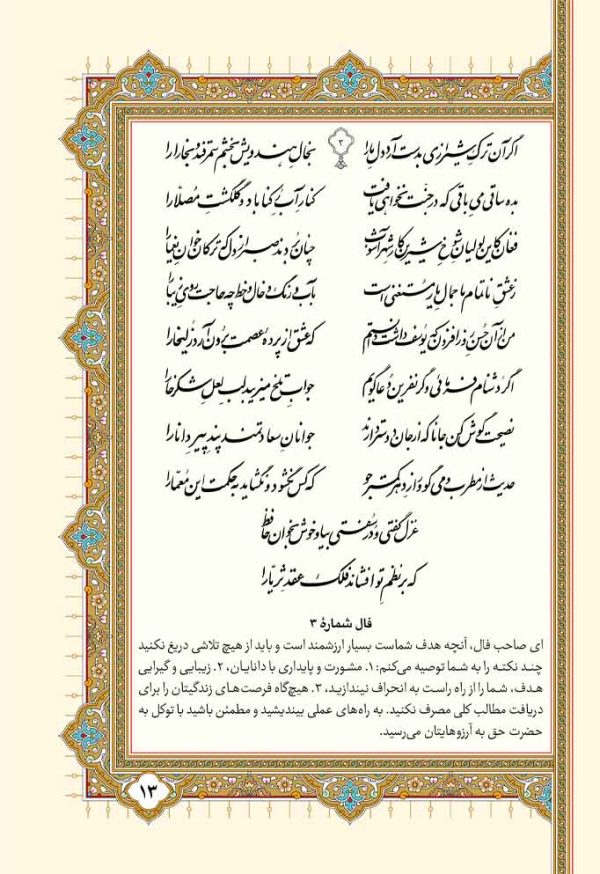 ۳
اگر آن ترک شیرازی بدست آرد دل ما را بخال هندویش بخشم سمرقند و بخارا را
بده ساقی می باقی که در جنت نخواهی یافت کنار آب رکناباد و گلگشت مصلّا را
فغان کاین لولیان شوخ شیرین کار شهرآشوب چنان بردند صبر از دل که ترکان خوان یغما را
ز عشق ناتمام ما جمال یار مستغنی است بآب و رنگ و خال و خط چه حاجت روی زیبا را
من از آن حسن روزافزون که یوسف داشت دانستم که عشق از پرده عصمت برون آرد زلیخا را
اگر دشنام فرمائی و گر نفرین دعا گویم جواب تلخ میزیبد لب لعل شکرخا را
نصیحت گوش کن جانا که از جان دوستتر دارند جوانان سعادتمند پند پیر دانا را
حدیث از مطرب و می گو و راز دهر کمتر جو که کس نگشود و نگشاید به حکمت این معمّا را
غزل گفتی و در سفتی بیا و خوش بخوان حافظ
که بر نظم تو افشاند فلک عقد ثریّا را
فال شمارهٔ ۳
ای صاحب فال، آنچه هدف شماست بسیار ارزشمند است و باید از هیچ تلاشی دریغ نکنید
چند نکته را به شما توصیه می‌کنم: ۱. مشورت و پایداری با دانایان، ۲. زیبایی و گیرایی
هدف، شما را از راه راست به انحراف نیندازید، ۳. هیچ‌گاه فرصت‌های زندگیتان را برای
دریافت مطالب کلی مصرف نکنید. به راه‌های عملی بیندیشید و مطمئن باشید با توکل به
حضرت حق به آرزوهایتان می‌رسید.
۱۳